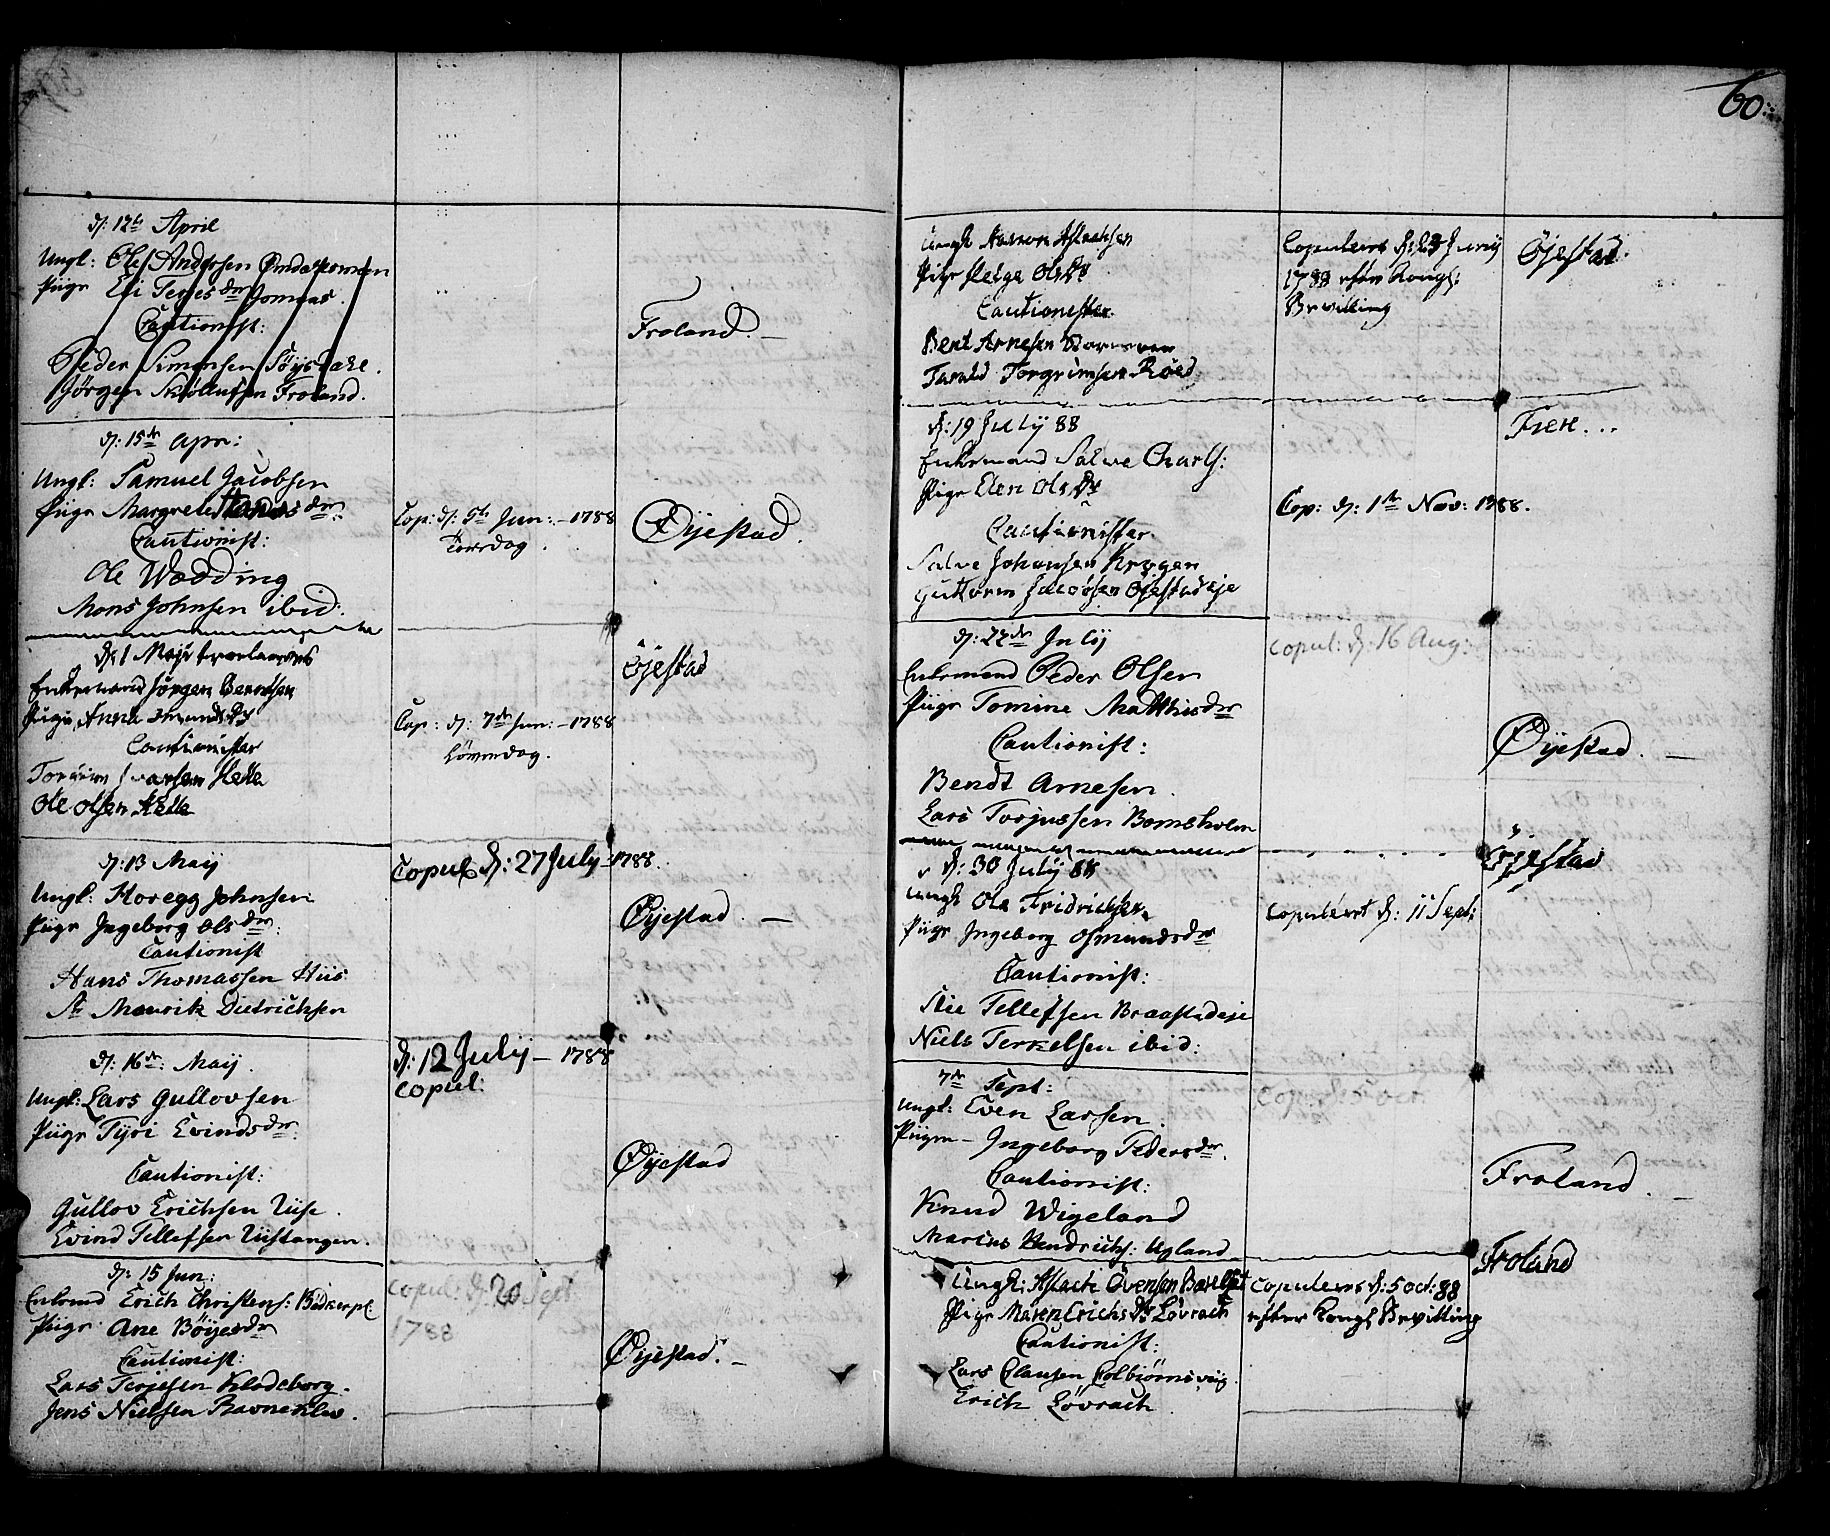 60.
d: 12te April
Ungk: Ole Andersen
Piige Eli Terjesdr Jomaas.
Cautionist:
Peder Simonsen
Jørgen Froland.
Froland.
d: 15de Apr:
Ungk: Samuel Jacobsen
Piige Margrete dr:
Cautionist:
Ole Wædding
Mons Johnsen ibid:
Cop: d: 5te Jun: - 1788
Torsdag.
Øijestad.
d: 1 Maji
Enkemand Jørgen Berntsen
Piige Anna
Cautionister
Helle
Ole Olsen Helle
Cop: d: 7de Jun: - 1788
Löverdag.
Öjestad
d: 13 Maij
Ungk: Johnsen
Piige Ingeborg Olsdr:
Cautionist
Hans Thomassen Hiis
Sr Dietrichsen
Copul d: 27 July - 1788.
Øijestad. -
d: 16de: Maij.
Ungk: Lars Gullovsen
Piige Tÿri Evindsdr
Cautionist:
Gullov Erichsen
Evind Tellefsen
d: 12 Julÿ - 1788
copul:
Øijestad
d: 15 Jun:
Enkemd Erich Christens:
Piige Ane Böÿesdr
Cautionist:
Lars Terjesen Klodeborg.
Jens Nielsen Ravneklev.
copul: d: 20 Sept
1788
Øijestad. -
Ungk
Piige Olsdr
Cautionister.
Bent Arnesen
Tarald Torgrimsen Röed
Copuleert d: 23 Junij
1788 efter Kongl:
Bevilling
Öjestad.
d: 19 Julÿ 88
Enkemand Salve Charls:
Piige Elen Olsdr
Cautionister.
Salve Johansen Krogen
Guttorm Jacobsen Öjestadeje
Cop: d: 1te Nov: 1788.
d: 22de Julÿ
Enkemand Peder Olsen
Piige Tomine Matthisdr
Cautionist:
Bendt Arnesen.
Lars Torjussen Bomsholm
copul: d: 16 Aug:
Øijestad. -
d: 30 July 88
Ungk Ole Fridrichsen
Piige Ingeborg Osmundsdr
Cautionist:
Tellefsen Braastadeje
Niels Terkelsen ibid:
Copuleert d: 11 Sept:
Öjestad
7de Sept:
Ungk: Even Larsen.
Piigen - Ingeborg Pedersdr
Cautionist:
Knud Wigeland
Marcus Hendrichs: Ugland
Froland. -
Ungk: Aslach Övensen
Pige Maren Erichsdr Lövrach
Cautionist:
Lars Clausen Colbiörnsvig.
Erich Lövrach
Copuleert d: 5 oct: 88
efter Kongl Bevilling
Froland